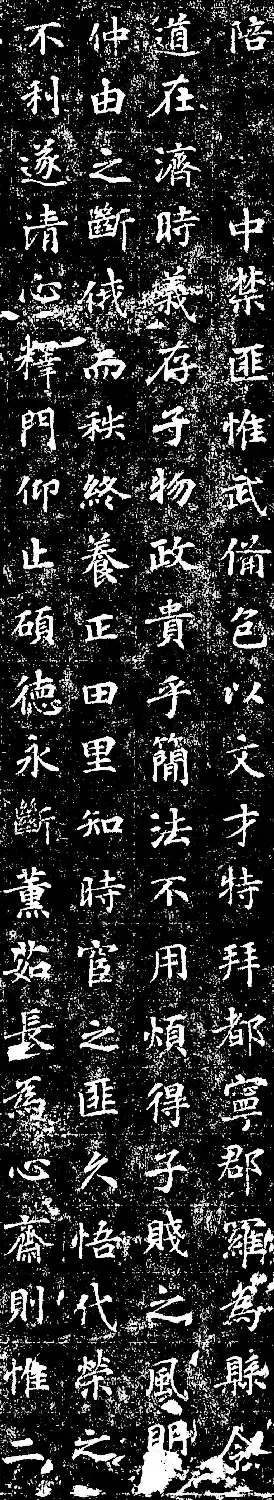 陪　中禁匪惟武俻色以文才特拜都寧郡羅為縣令
道在濟時義存子物政貴乎簡法不用煩得子賤之風明
仲由之斷俄而秩終養正田里知時宦之匪久悟代榮之
不利遂清心釋門仰止碩德永斷薰茹長為心齋則惟二